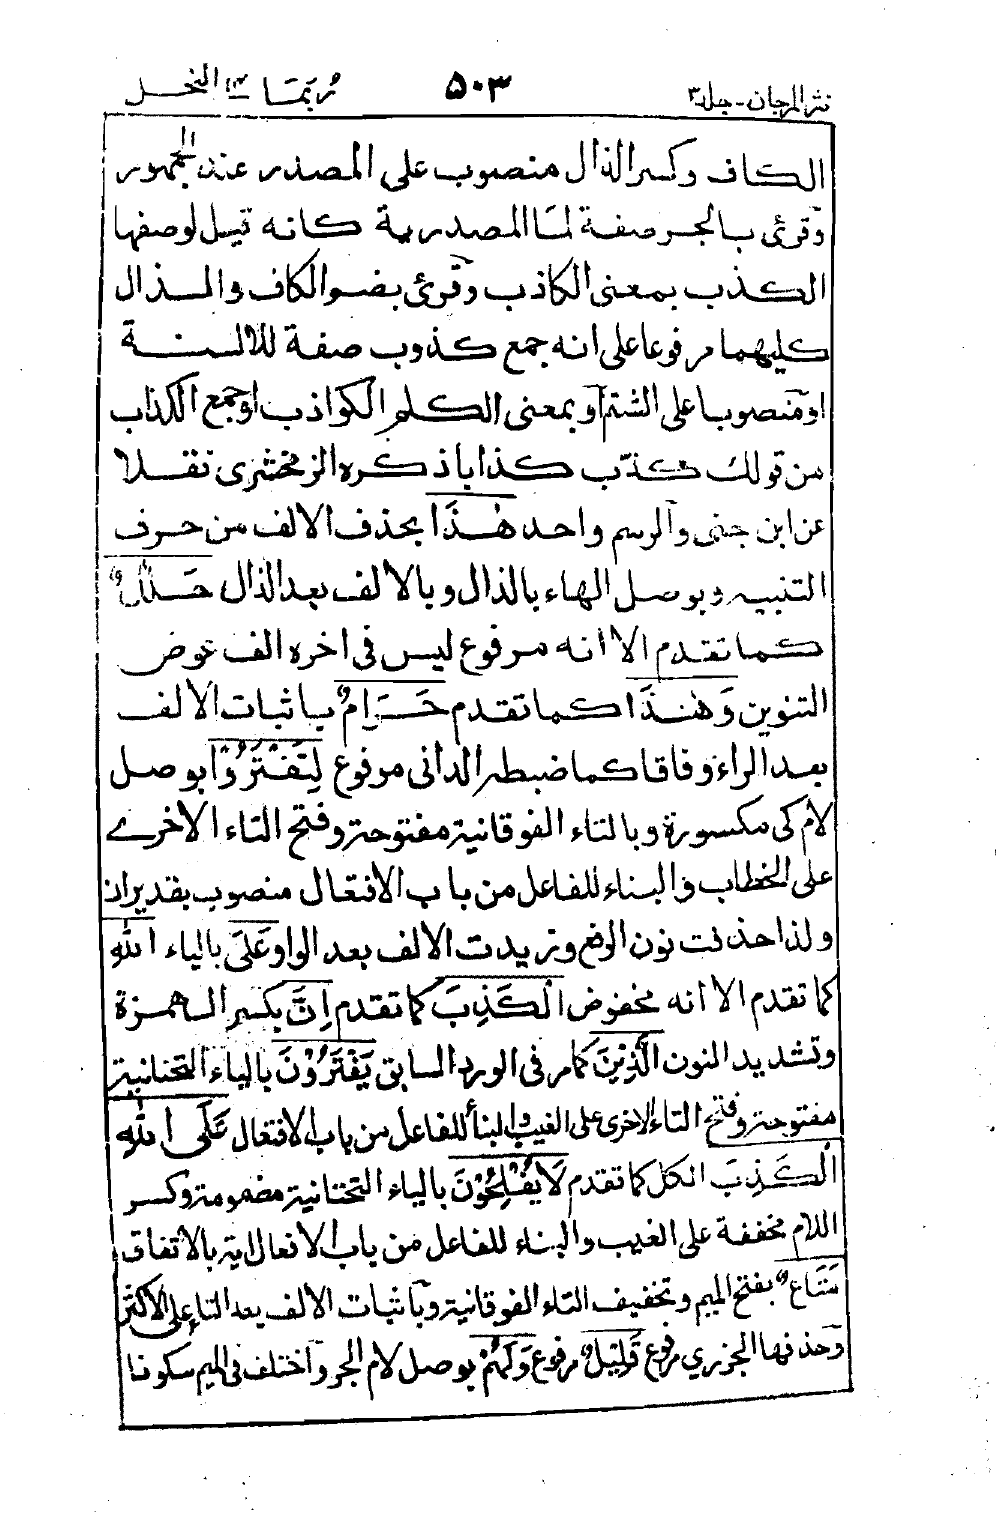 نثر المرجان - جلد ٣ ٥٠٣ ربما ١٤ النحل
الكاف وكسر الذال منصوب على المصدر عند الجمهور
وقرئ بالجر صفة لما المصدرية كانه قيل لوصفها
الكذب بمعنى الكاذب وقرئ بضم الكاف والذال
كليهما مرفوعا على انه جمع كذوب صفة للالسنة
او منصوبا على الشتم او بمعنى الكلم الكواذب او جمع الكذاب
من قولك كذب كذابا ذكره الزمخشرى نقلا
عن ابن جنى والرسم واحد هٰذَا بحذف الالف من حرف
التنبيه وبوصل الهاء بالذال وبالالف بعد الذال حَلٰلٌ
كما تقدم الا انه مرفوع ليس فى اخره الف عوض
التنوين وَهٰذَا كما تقدم حَرَامٌ باثبات الالف
بعد الراء وفاقا كما ضبطه الدانى مرفوع لِتَفْتَرُوْا بوصل
لام كى مكسورة وبالتاء الفوقانية مفتوحة وفتح التاء الاخرے
على الخطاب والبناء للفاعل من باب الافتعال منصوب بقدير ان
ولذا حذفت نون الرفع وزيدت الالف بعد الواو عَلَى بالياء اللّٰهِ
كما تقدم الا انه مخفوض الْكَذِبَ كما تقدم اِنَّ بكسر الهمزة
وتشديد النون الَّذِيْنَ كما مر فى الورد السابق يَفْتَرُوْنَ بالياء التحتانية
مفتوحة وفتح التاء الاخرى على الغيب والبناء للفاعل من باب الافتعال عَلَى اللّٰهِ
الْكَذِبَ الكل كما تقدم لَا يُفْلِحُوْنَ بالياء التحتانية مضمومة وكسر
اللام مخففة على الغيب والبناء للفاعل من باب الافعال اية بالاتفاق
مَتَاعٌ بفتح الميم وتخفيف التاء الفوقانية وباثبات الالف بعد التاء على الاكثر
وحذفها الجزرى مرفوع قَلِيْلٌ مرفوع وَلَهُمْ بوصل لام الجر واختلف فى الميم سكونا